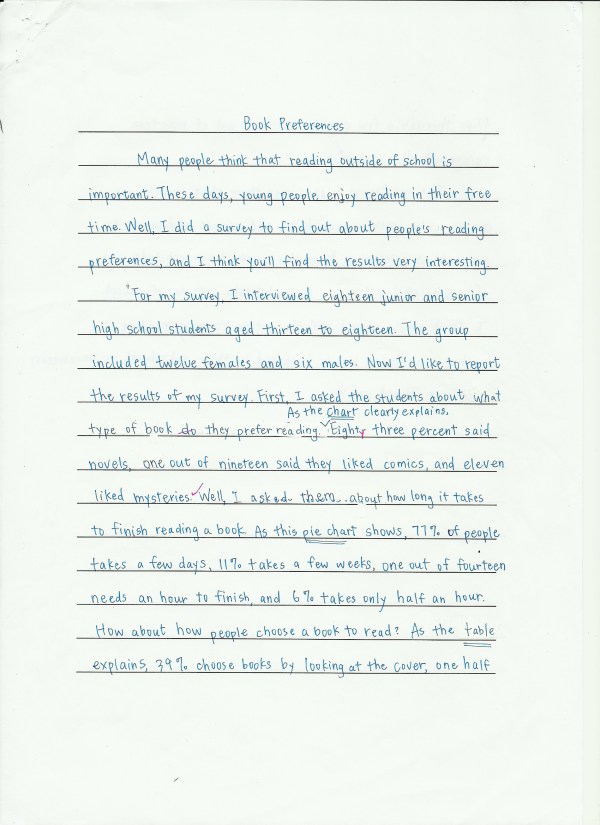 Book Preferences
Many people think that reading outside of school is
important. These days, young people enjoy reading in their free
time. Well, I did a survey to find out about people's reading
preferences, and I think you'll find the results very interesting.
"For my survey, I interviewed eighteen junior and senior
high school students aged thirteen to eighteen. The group
included twelve females and six males. Now I'd like to report
the results of my survey. First, I asked the students about what
As the chart clearly explains,
type of book do they prefer reading. Eighty three percent said
novels, one out of nineteen said they liked comics, and eleven
liked mysteries. Well, I asked them about how long it takes
to finish reading a book. As this pie chart shows, 77% of people
takes a few days, 11% takes a few weeks, one out of fourteen
needs an hour to finish, and 6% takes only half an hour.
How about how people choose a book to read? As the table
explains, 39% choose books by looking at the cover, one half